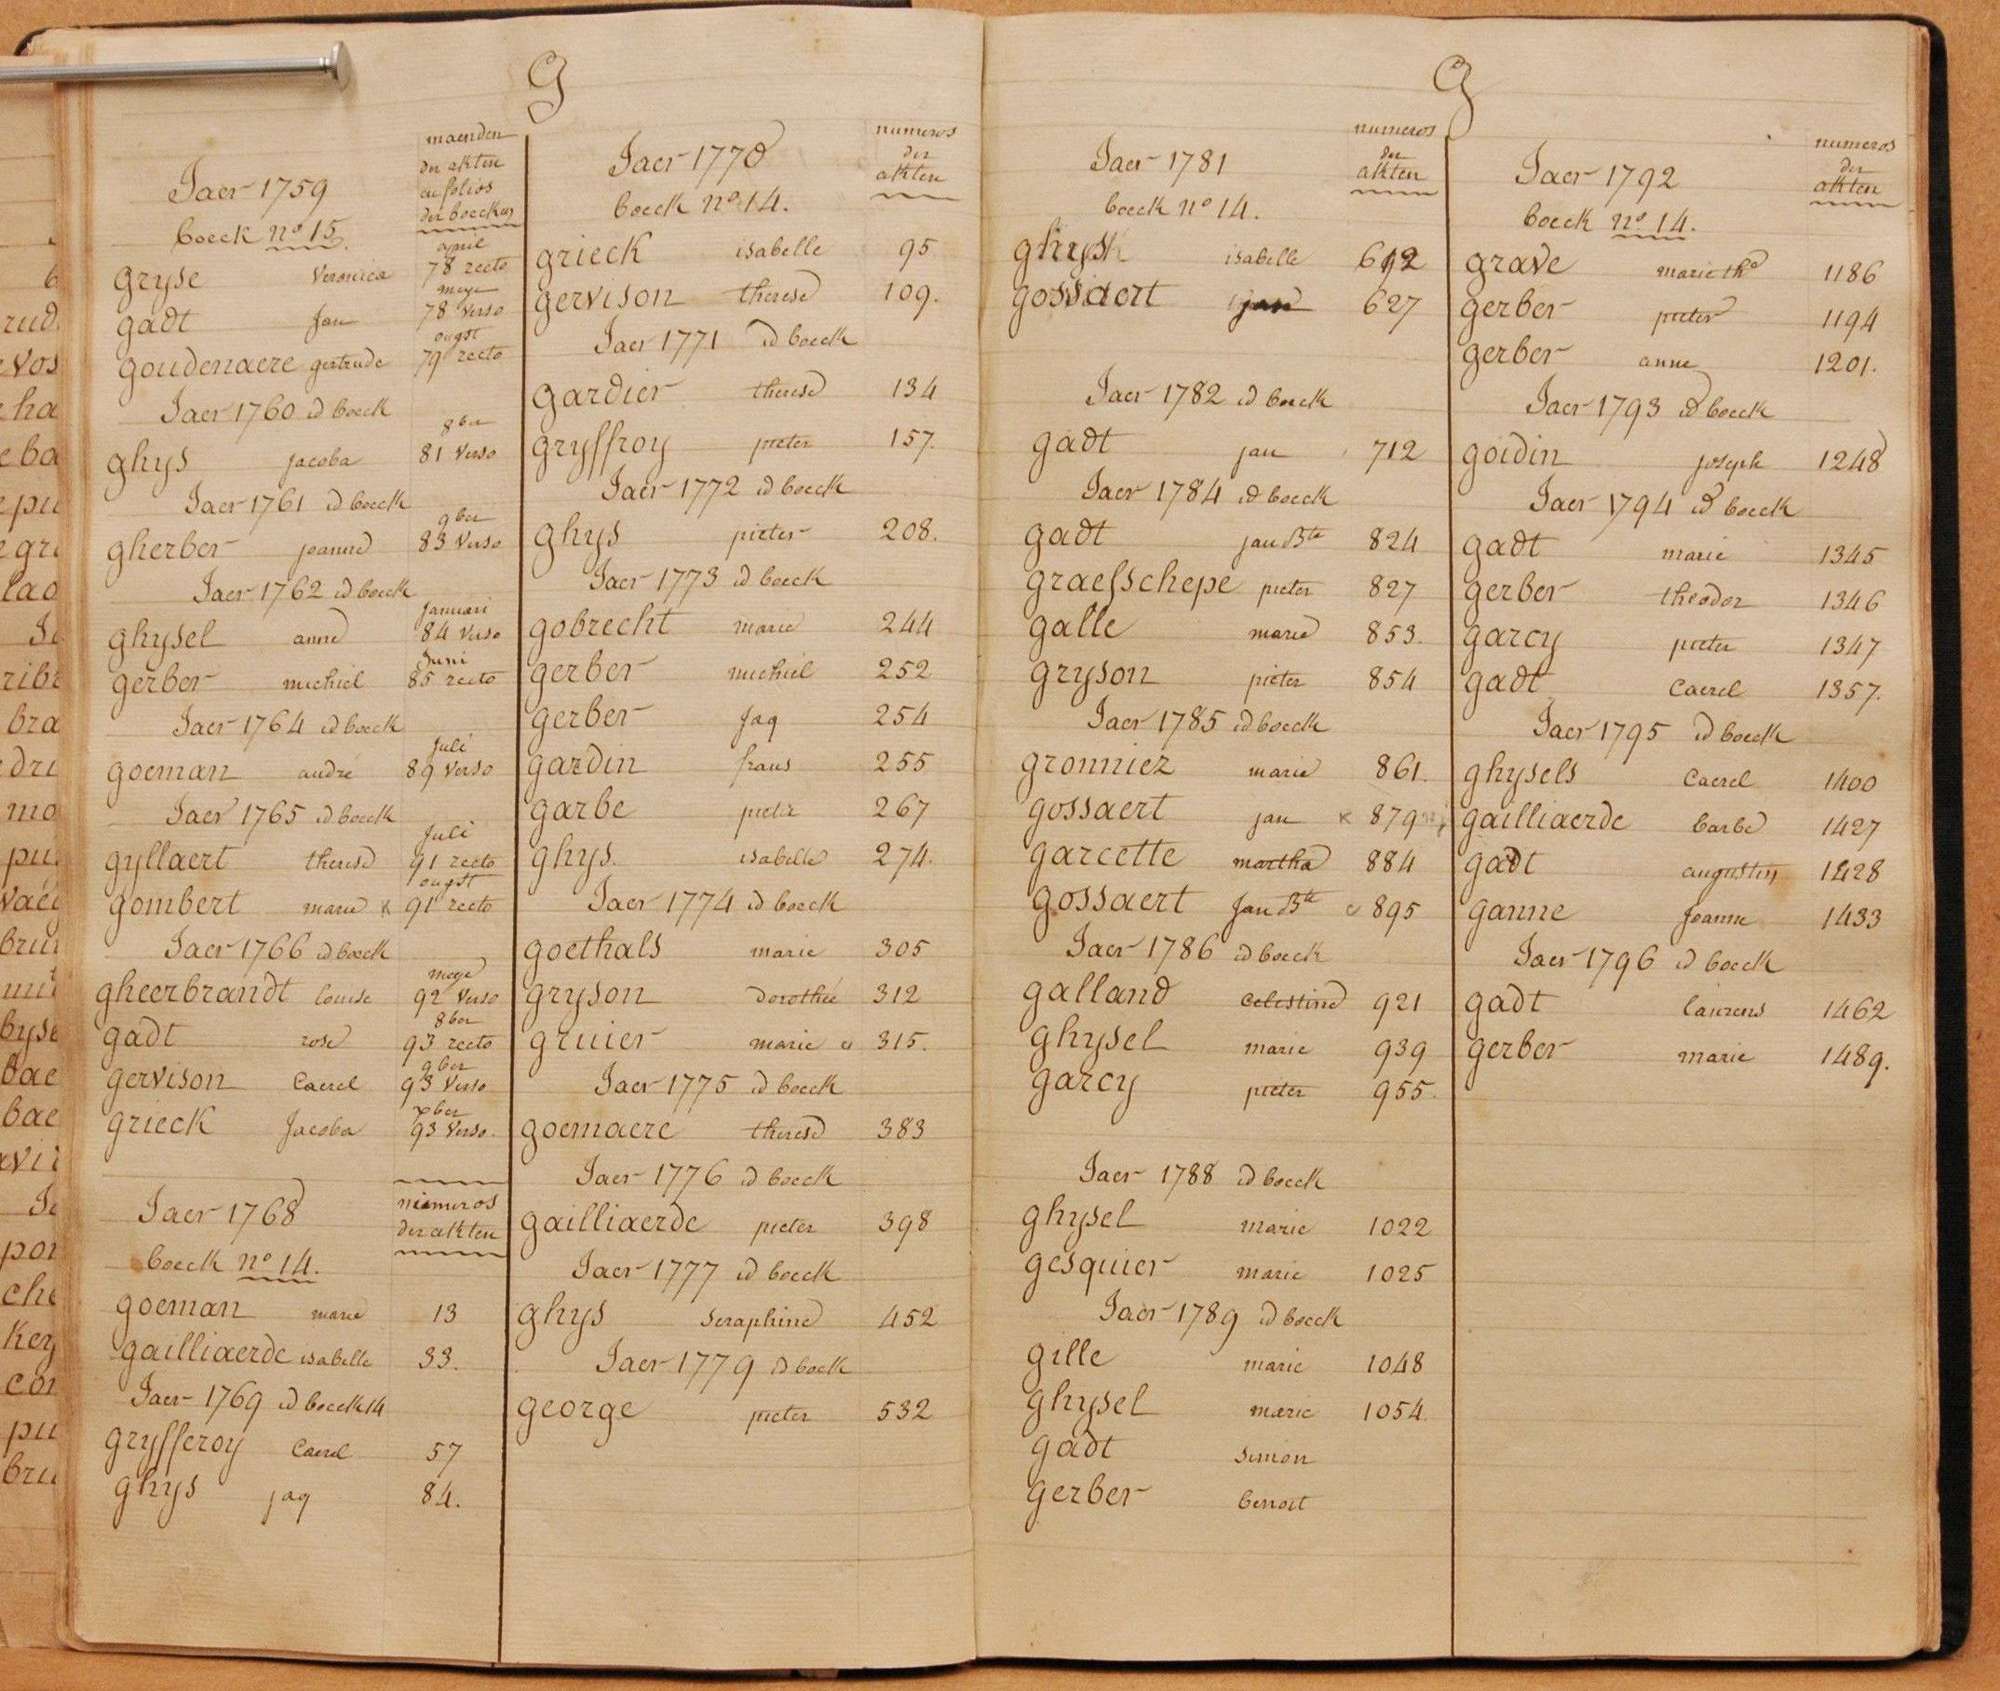 G
Jaer 1759
maenden
der akten
en folios
der boecken
boeck nº 15.
april
gryse veronica 78 recto
meye
gadt jan 78 verso
ougst
goudenaere gertrude 79 recto
Jaer 1760 id boeck
8ber
ghys jacoba 81 verso
Jaer 1761 id boeck
9ber
gherber joanne 83 verso
Jaer 1762 id boeck
januari
ghysel anne 84 verso
juni
gerber michiel 85 recto
Jaer 1764 id boeck
juli
goeman andré 89 verso
Jaer 1765 id boeck
juli
gyllaert therese 91 recto
ougst
gombert marie x 91 recto
Jaer 1766 id boeck
meye
gheerbrandt louise 92 verso
8ber
gadt rose 93 recto
9ber
gervison Caerel 93 verso
xber
grieck Jacoba 93 verso.
Jaer 1768
numeros
der akten
boeck nº 14.
goeman marie 13
gailliaerde isabelle 33.
Jaer 1769 id boeck 14
gryfferoy Caerel 57
ghys jaq 84.
Jaer 1770
numeros
der
akten
boeck nº 14.
grieck isabelle 95
gervison therese 109.
Jaer 1771 id boeck
gardier therese 134
gryffroy pieter 157.
Jaer 1772 id boeck
ghys pieter 208.
Jaer 1773 id boeck
gobrecht marie 244
gerber michiel 252
gerber jaq 254
gardin frans 255
garbe pieter 267
ghys. isabelle 274.
Jaer 1774 id boeck
goethals marie 305
gryson dorothée 312
gruier marie 315.
Jaer 1775 id boeck
goemaere therese 383
Jaer 1776 id boeck
gailliaerde pieter 398
Jaer 1777 id boeck
ghys seraphine 452
Jaer 1779 id boeck
george pieter 532
G
Jaer 1781
numeros
der
akten
boeck nº 14.
ghysk isabelle 612
gossaert jan 627
Jaer 1782 id boeck
gadt jan 712
Jaer 1784 id boeck
gadt jan Bte 824
graefschepe pieter 827
galle marie 853.
gryson pieter 854
Jaer 1785 id boeck
gronniez marie 861.
gossaert jan x 879
garcette martha 884
gossaert jan Bte 895
Jaer 1786 id boeck
galland celestine 921
ghysel marie 939
garcy pieter 955.
Jaer 1788 id boeck
ghysel marie 1022
gesquier marie 1025
Jaer 1789 id boeck
gille marie 1048
ghysel marie 1054.
gadt simon
gerber benoit
Jaer 1792
numeros
der
akten
boeck nº 14.
grave marie the 1186
gerber pieter 1194
gerber anne 1201.
Jaer 1793 id boeck
goidin joseph 1248
Jaer 1794 id boeck
gadt marie 1345
gerber theodor 1346
garcy pieter 1347
gadt Caerel 1357.
Jaer 1795 id boeck
ghysels Caerel 1400
gailliaerde barbe 1427
gadt augustin 1428
ganne Joanne 1433
Jaer 1796 id boeck
gadt laurens 1462
gerber marie 1489.